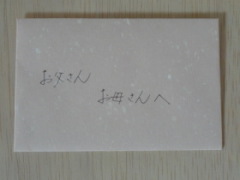 お父さん
お母さんへ